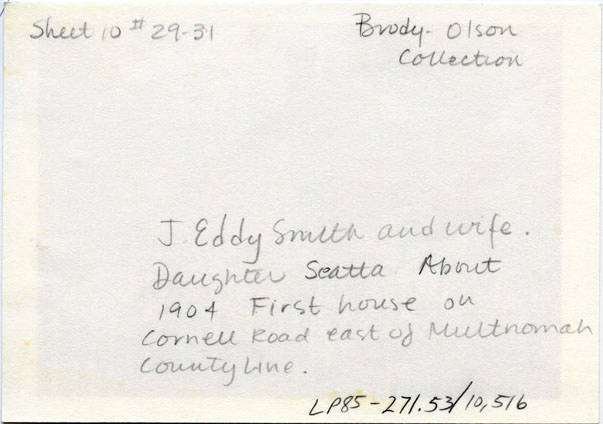 Sheet 10 # 29-31
Brody-Olson
Collection
J. Eddy Smith and wife.
Daughter Seatta. About
1904 First house on
Cornell Road east of Multnomah
County Line.
LP85-271.53/10,516